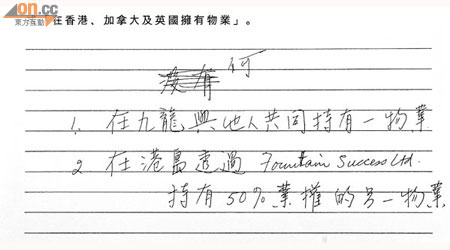 on.cc
東方互動
在香港、加拿大及英國擁有物業」。
何
1. 在九龍與他人共同持有一物業
2 在港島透過 Fountain Success Ltd.
持有50%業權的另一物業